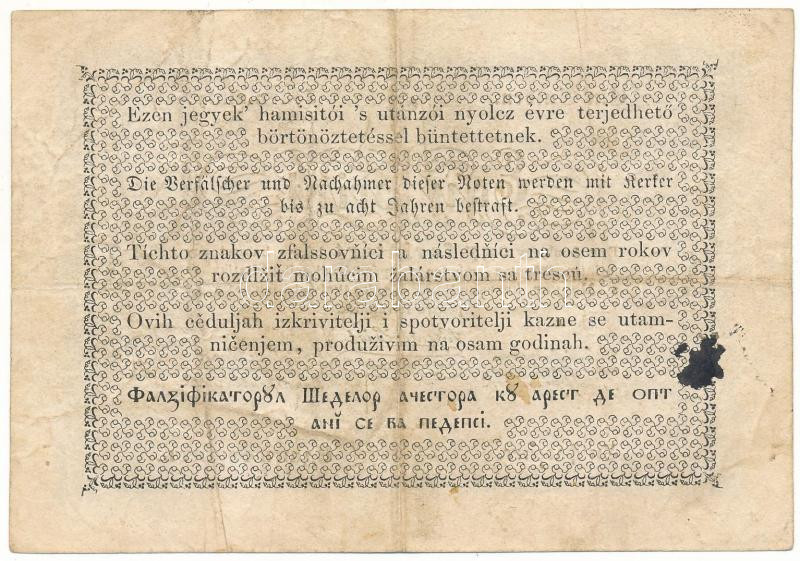 Ezen jegyek' hamisitói 's utánzói nyolcz évre terjedhető
börtönöztetéssel büntettetnek.
Die Verfälscher und Nachahmer dieser Noten werden mit Kerker
bis zu acht Jahren bestraft.
Tíchto znakov zfalssovňíci i následňíci na osem rokov
rozdlžiť mohúcim žalárstvom sa trescú.
Ovih cěduljah izkrivitelji i spotvoritelji kazne se utam-
ničenjem, produživim na osam godinah.
Фалꙁіфікаторꙋл Шеделор ачестора кꙋ арест де опт
анĭ се ва педепсі.
darabanth